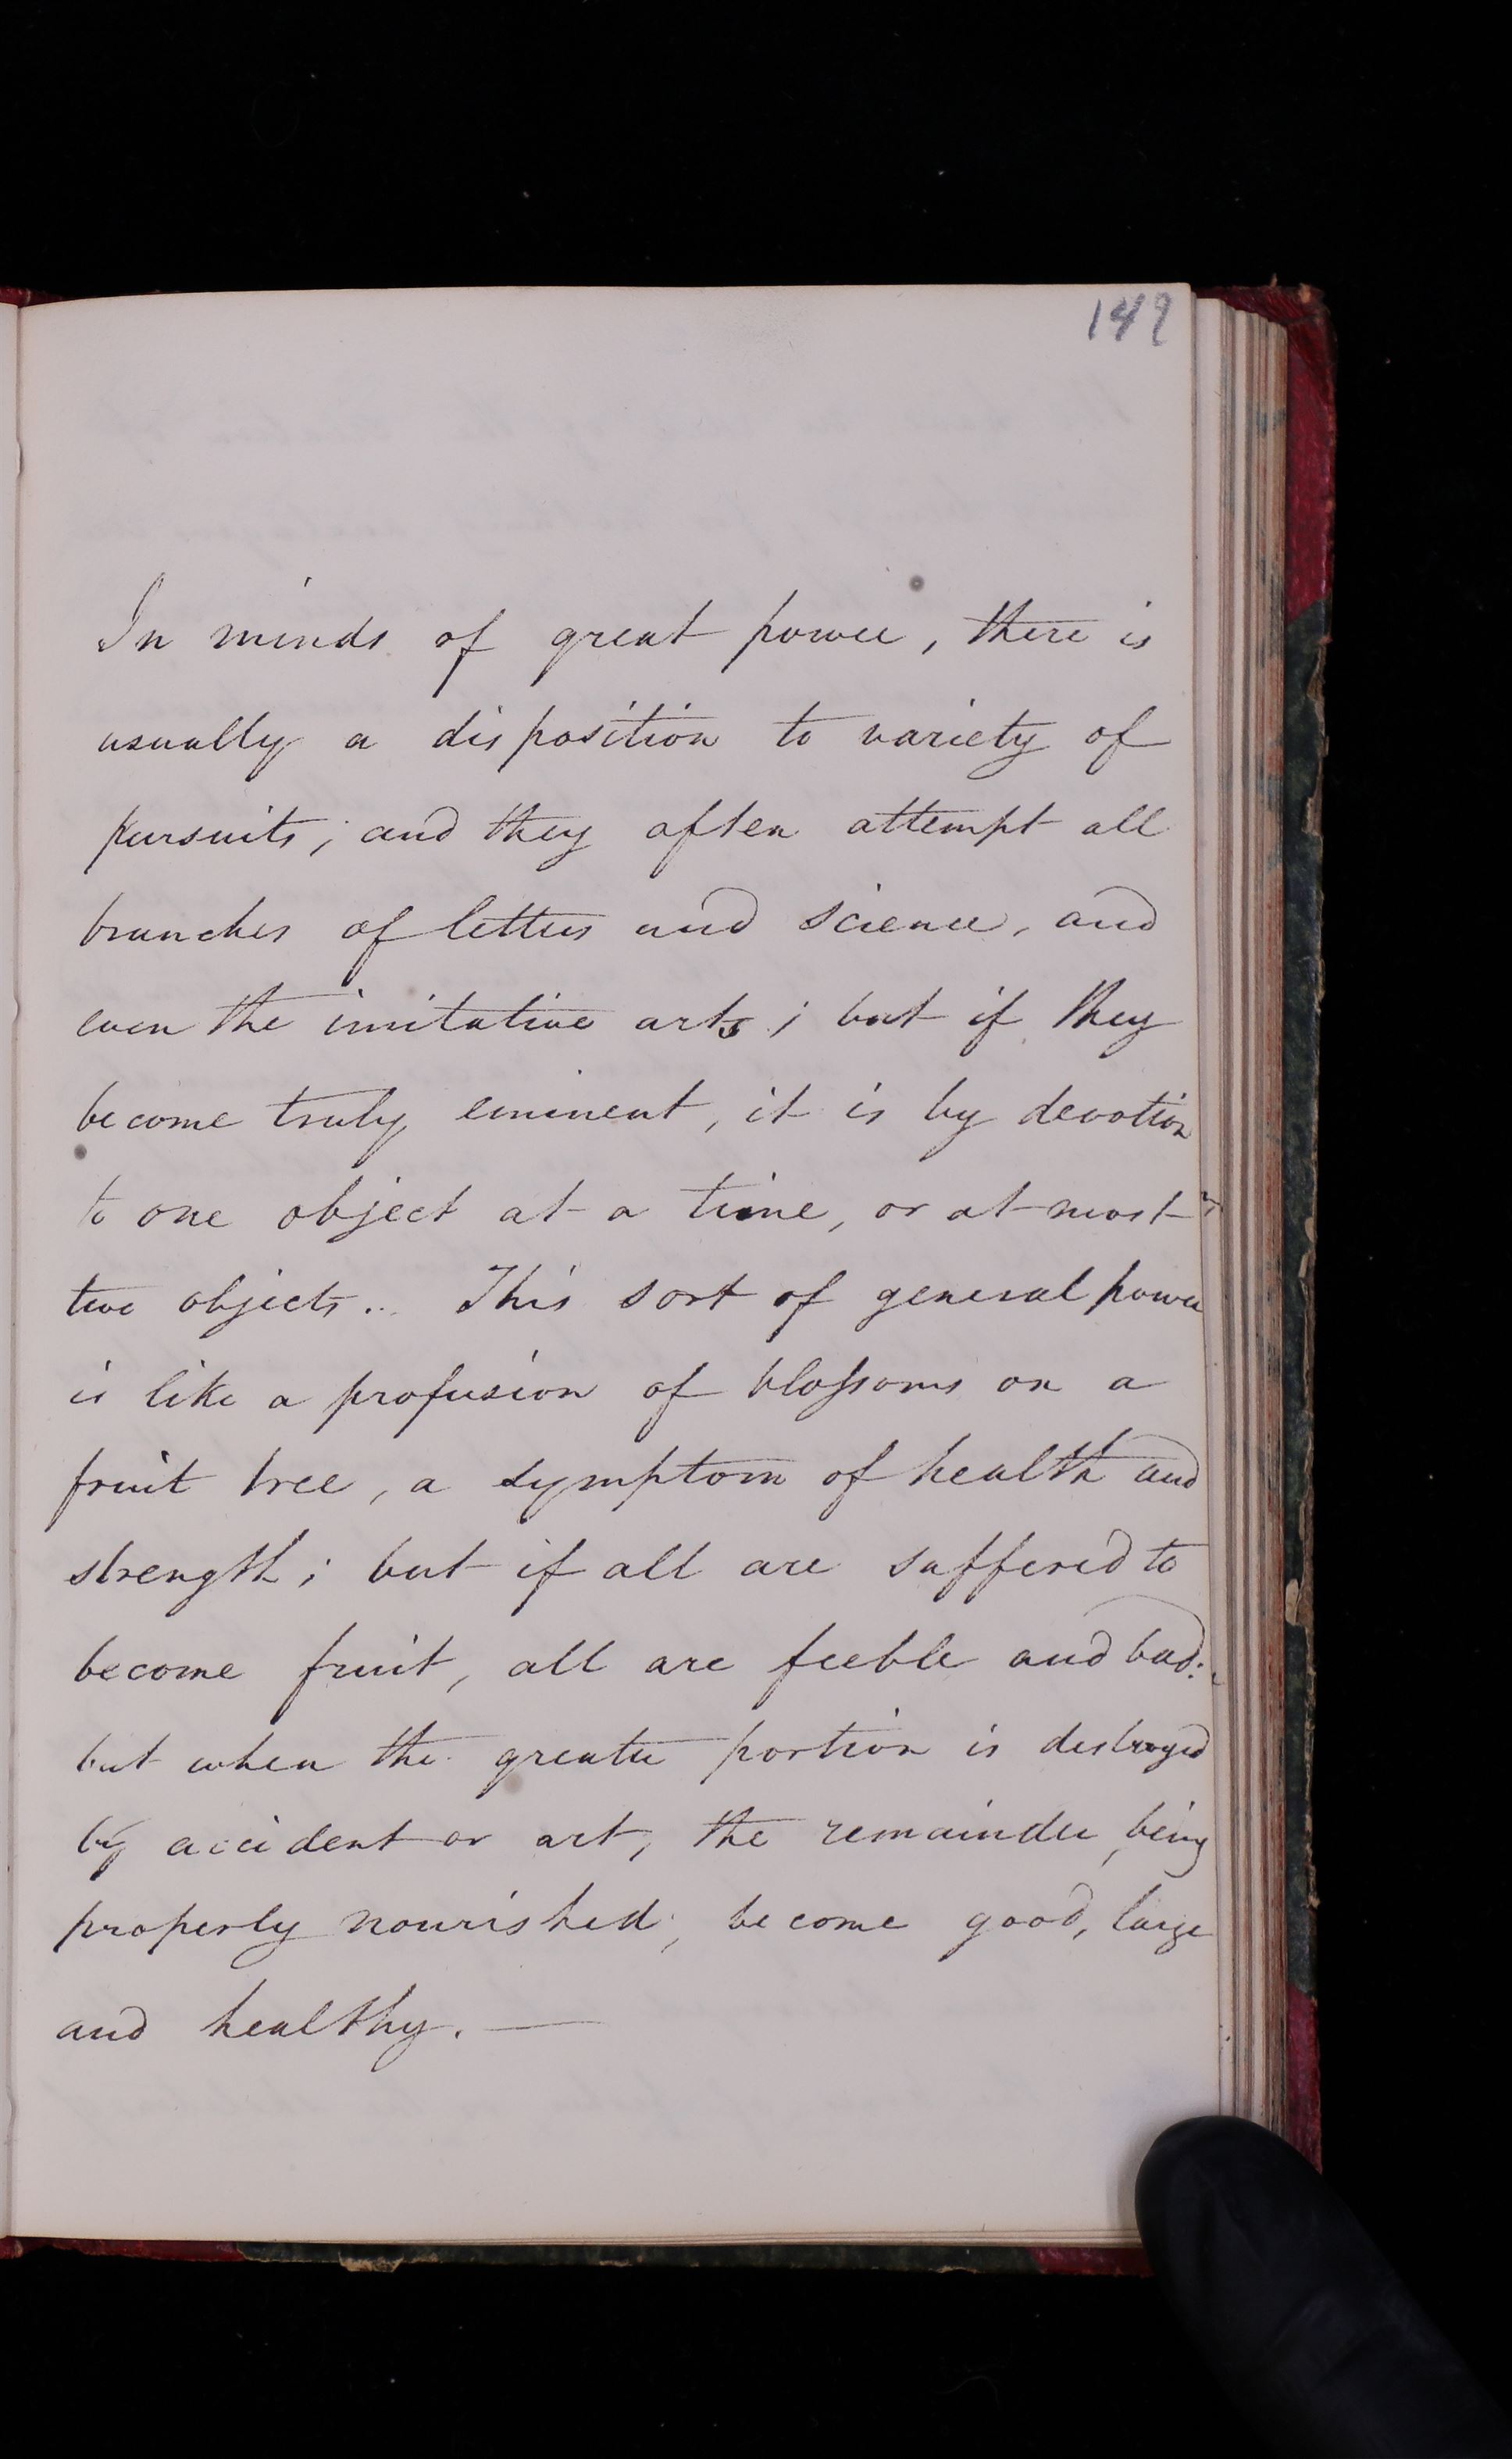 149
In minds of great power, there is
usually a disposition to variety of
pursuits; and they often attempt all
branches of letters and science, and
even the imitative arts; but if they
become truly eminent, it is by devotion
to one object at a time, or at most
two objects.. This sort of general power
is like a profusion of blossoms on a
fruit tree, a symptom of health and
strength; but if all are suffered to
become fruit, all are feeble and bad:
but when the greater portion is destroyed
by accident or art, the remainder, being
properly nourished, become good, large
and healthy. —